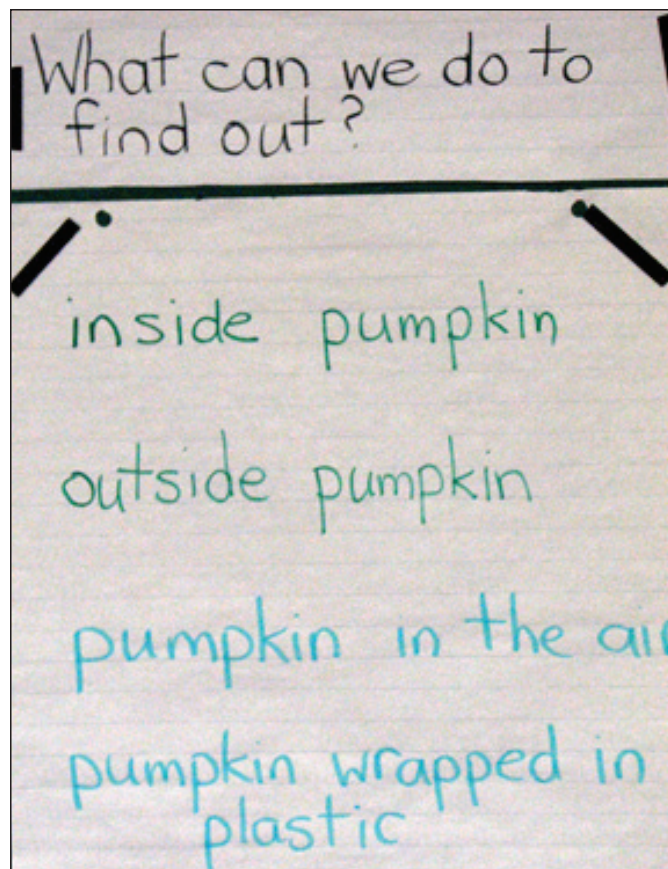 What can we do to
find out?
inside pumpkin
outside pumpkin
pumpkin in the air
pumpkin wrapped in
plastic